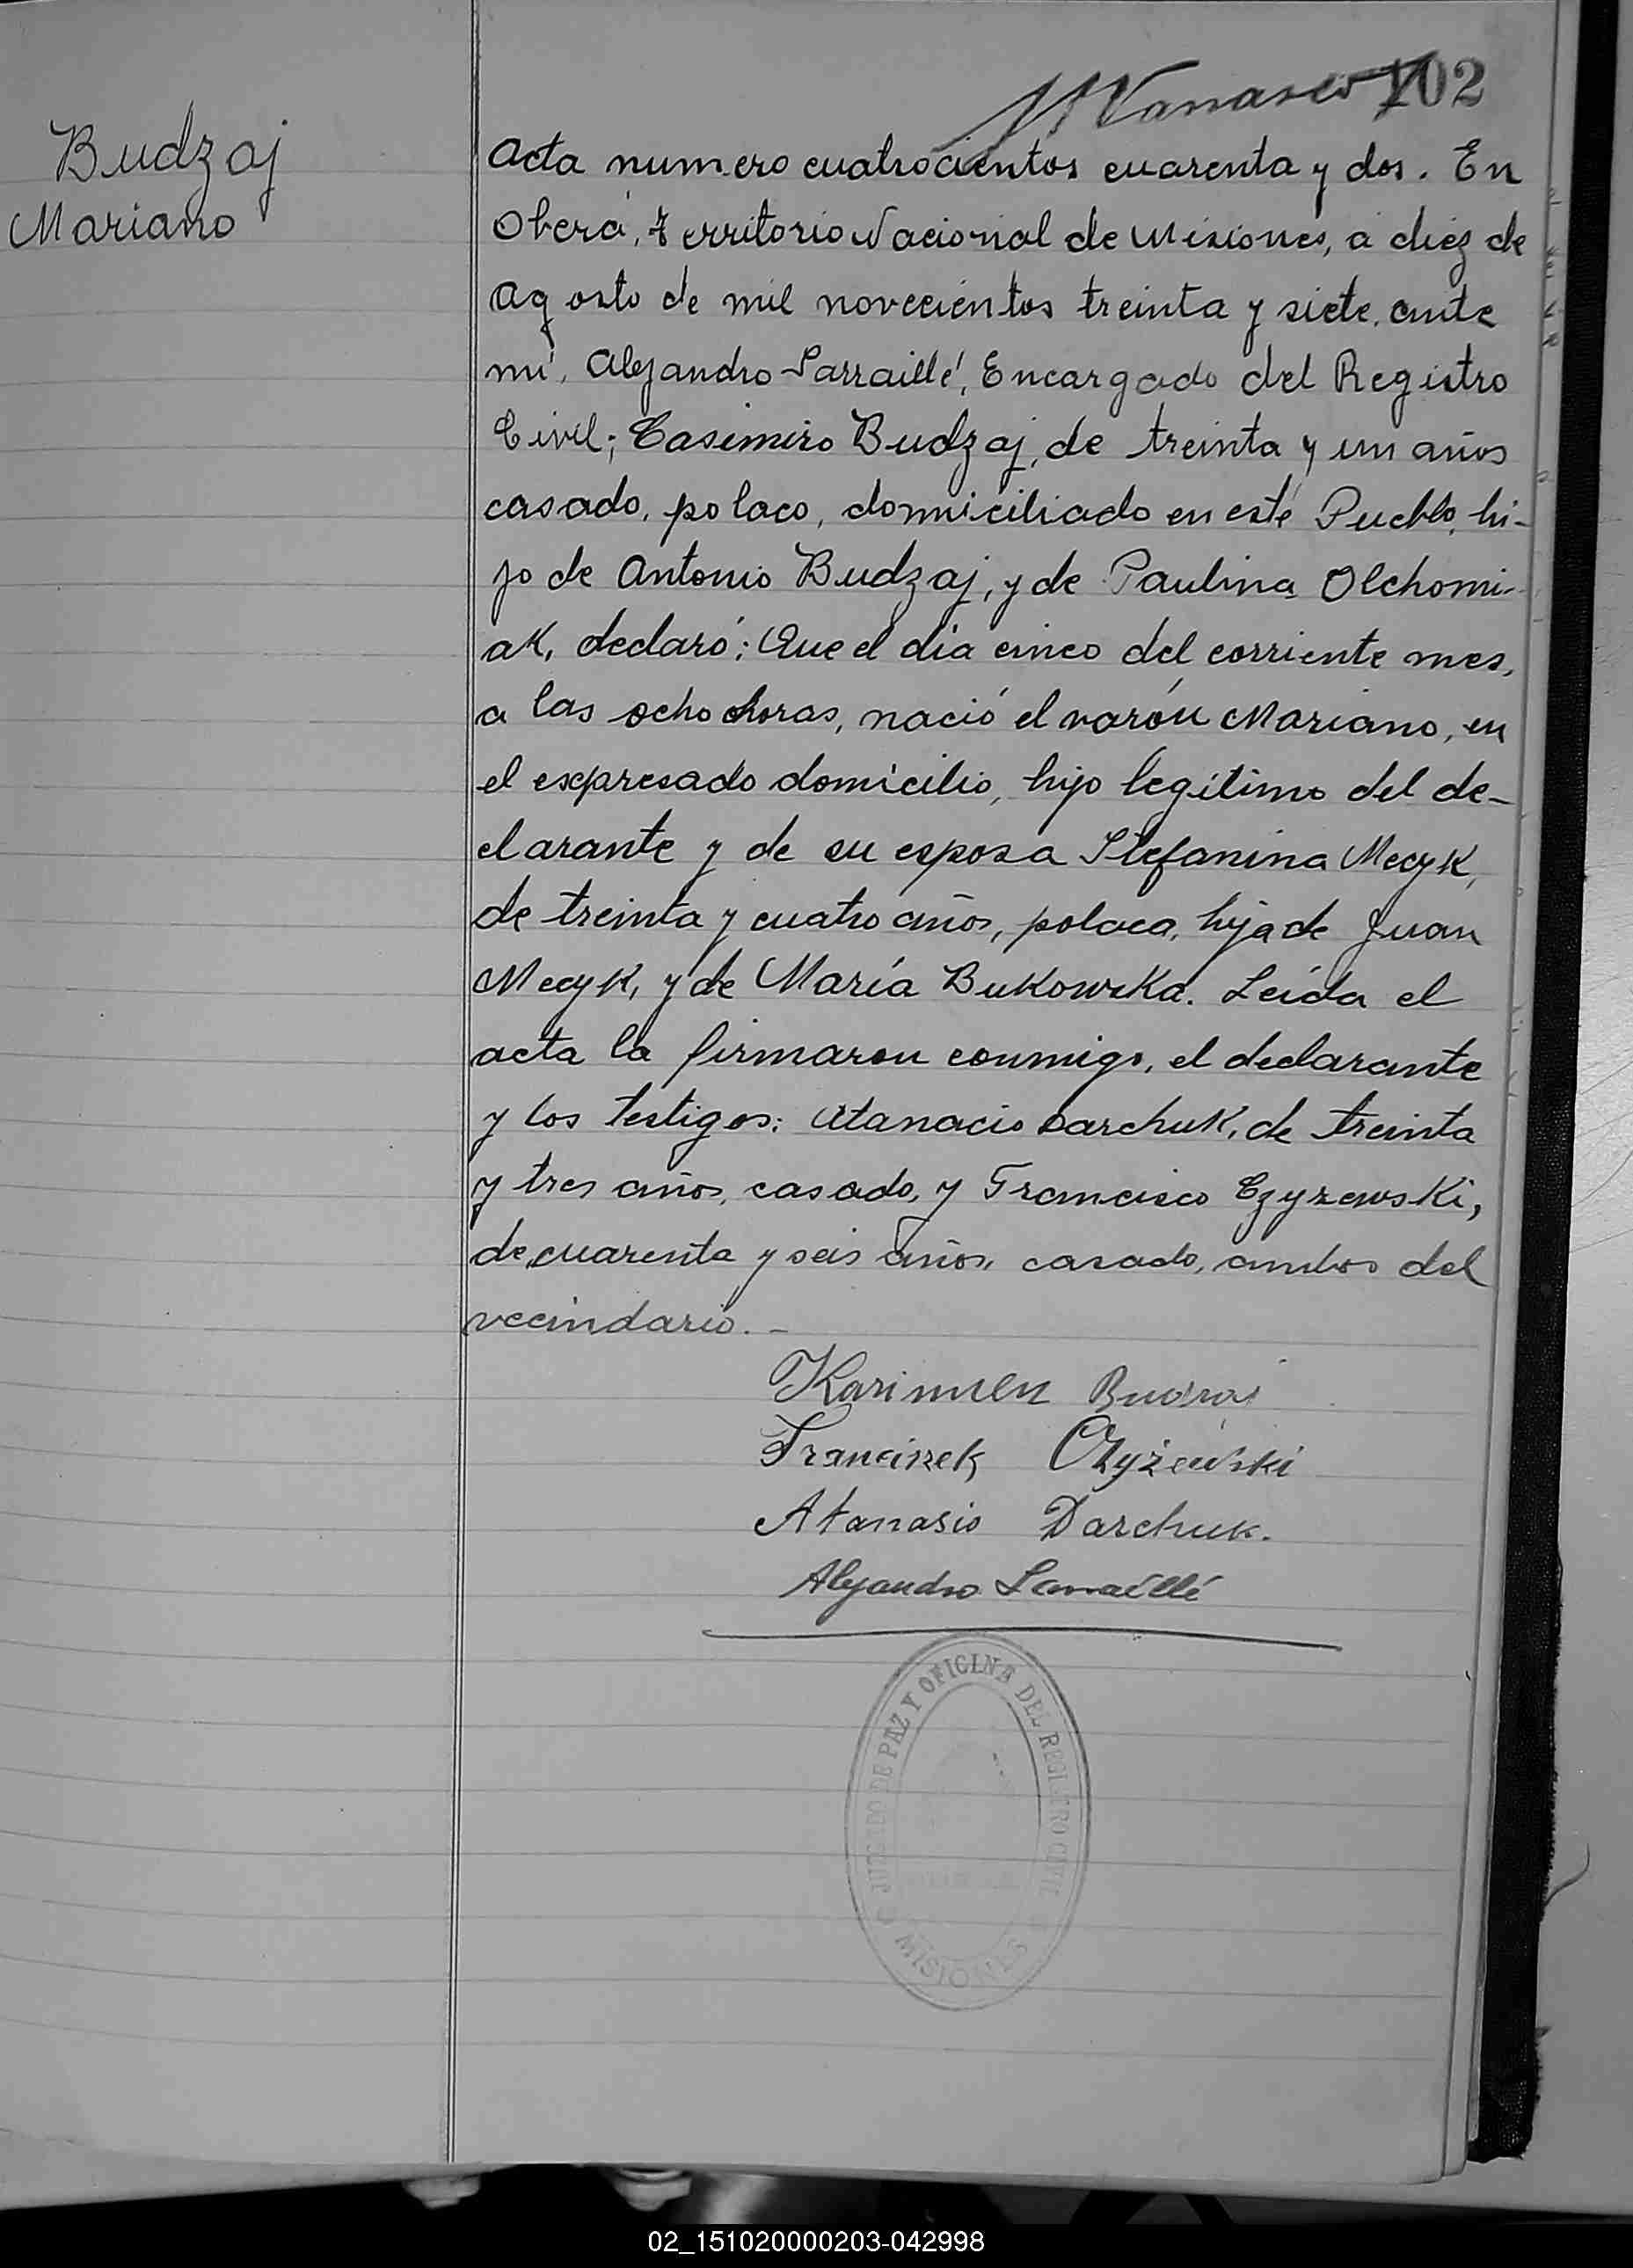 102
Budzaj
Mariano
Acta numero cuatrocientos cuarenta y dos. En
Oberá, Territorio Nacional de Misiones, a diez de
Agosto de mil novecientos treinta y siete, ante
mi, Alejandro Larraillé, Encargado del Registro
Civil; Casimiro Budzaj, de treinta y un años
casado, polaco, domiciliado en este Pueblo, hi-
jo de Antonio Budzaj, y de Paulina Olchomi-
ak, declaró: Que el día cinco del corriente mes,
a las ocho horas, nació el varón Mariano, en
el expresado domicilio, hijo legítimo del de-
clarante y de su esposa Stefanina Mecyk,
de treinta y cuatro años, polaca, hija de Juan
Mecyk, y de María Bukowska. Leída el
acta la firmaron conmigo, el declarante
y los testigos: Atanacio Darchuk, de treinta
y tres años, casado, y Francisco Czyzewski,
de cuarenta y seis años, casado, ambos del
vecindario. -
Franciszek Czyżewski
Atanasio Darchuk.
Alejandro Larraillé
JUZGADO DE PAZ Y OFICINA DEL REGISTRO CIVIL
MISIONES
02_151020000203-042998